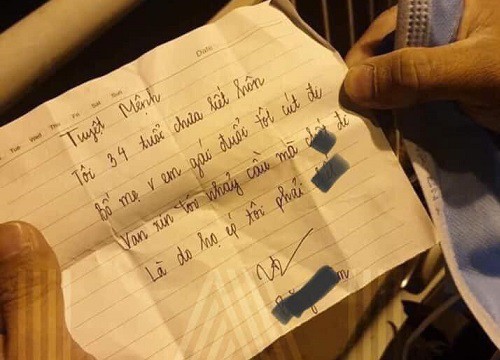 Date:
Tue Wed Thu Fri Sat Sun
Tuyệt Mệnh
Tôi 34 tuổi chưa kết hôn
Bố mẹ v em gác đuổi tôi cút đi
Van xin tôi nhảy cầu mà đi
Là do họ ép tôi phải